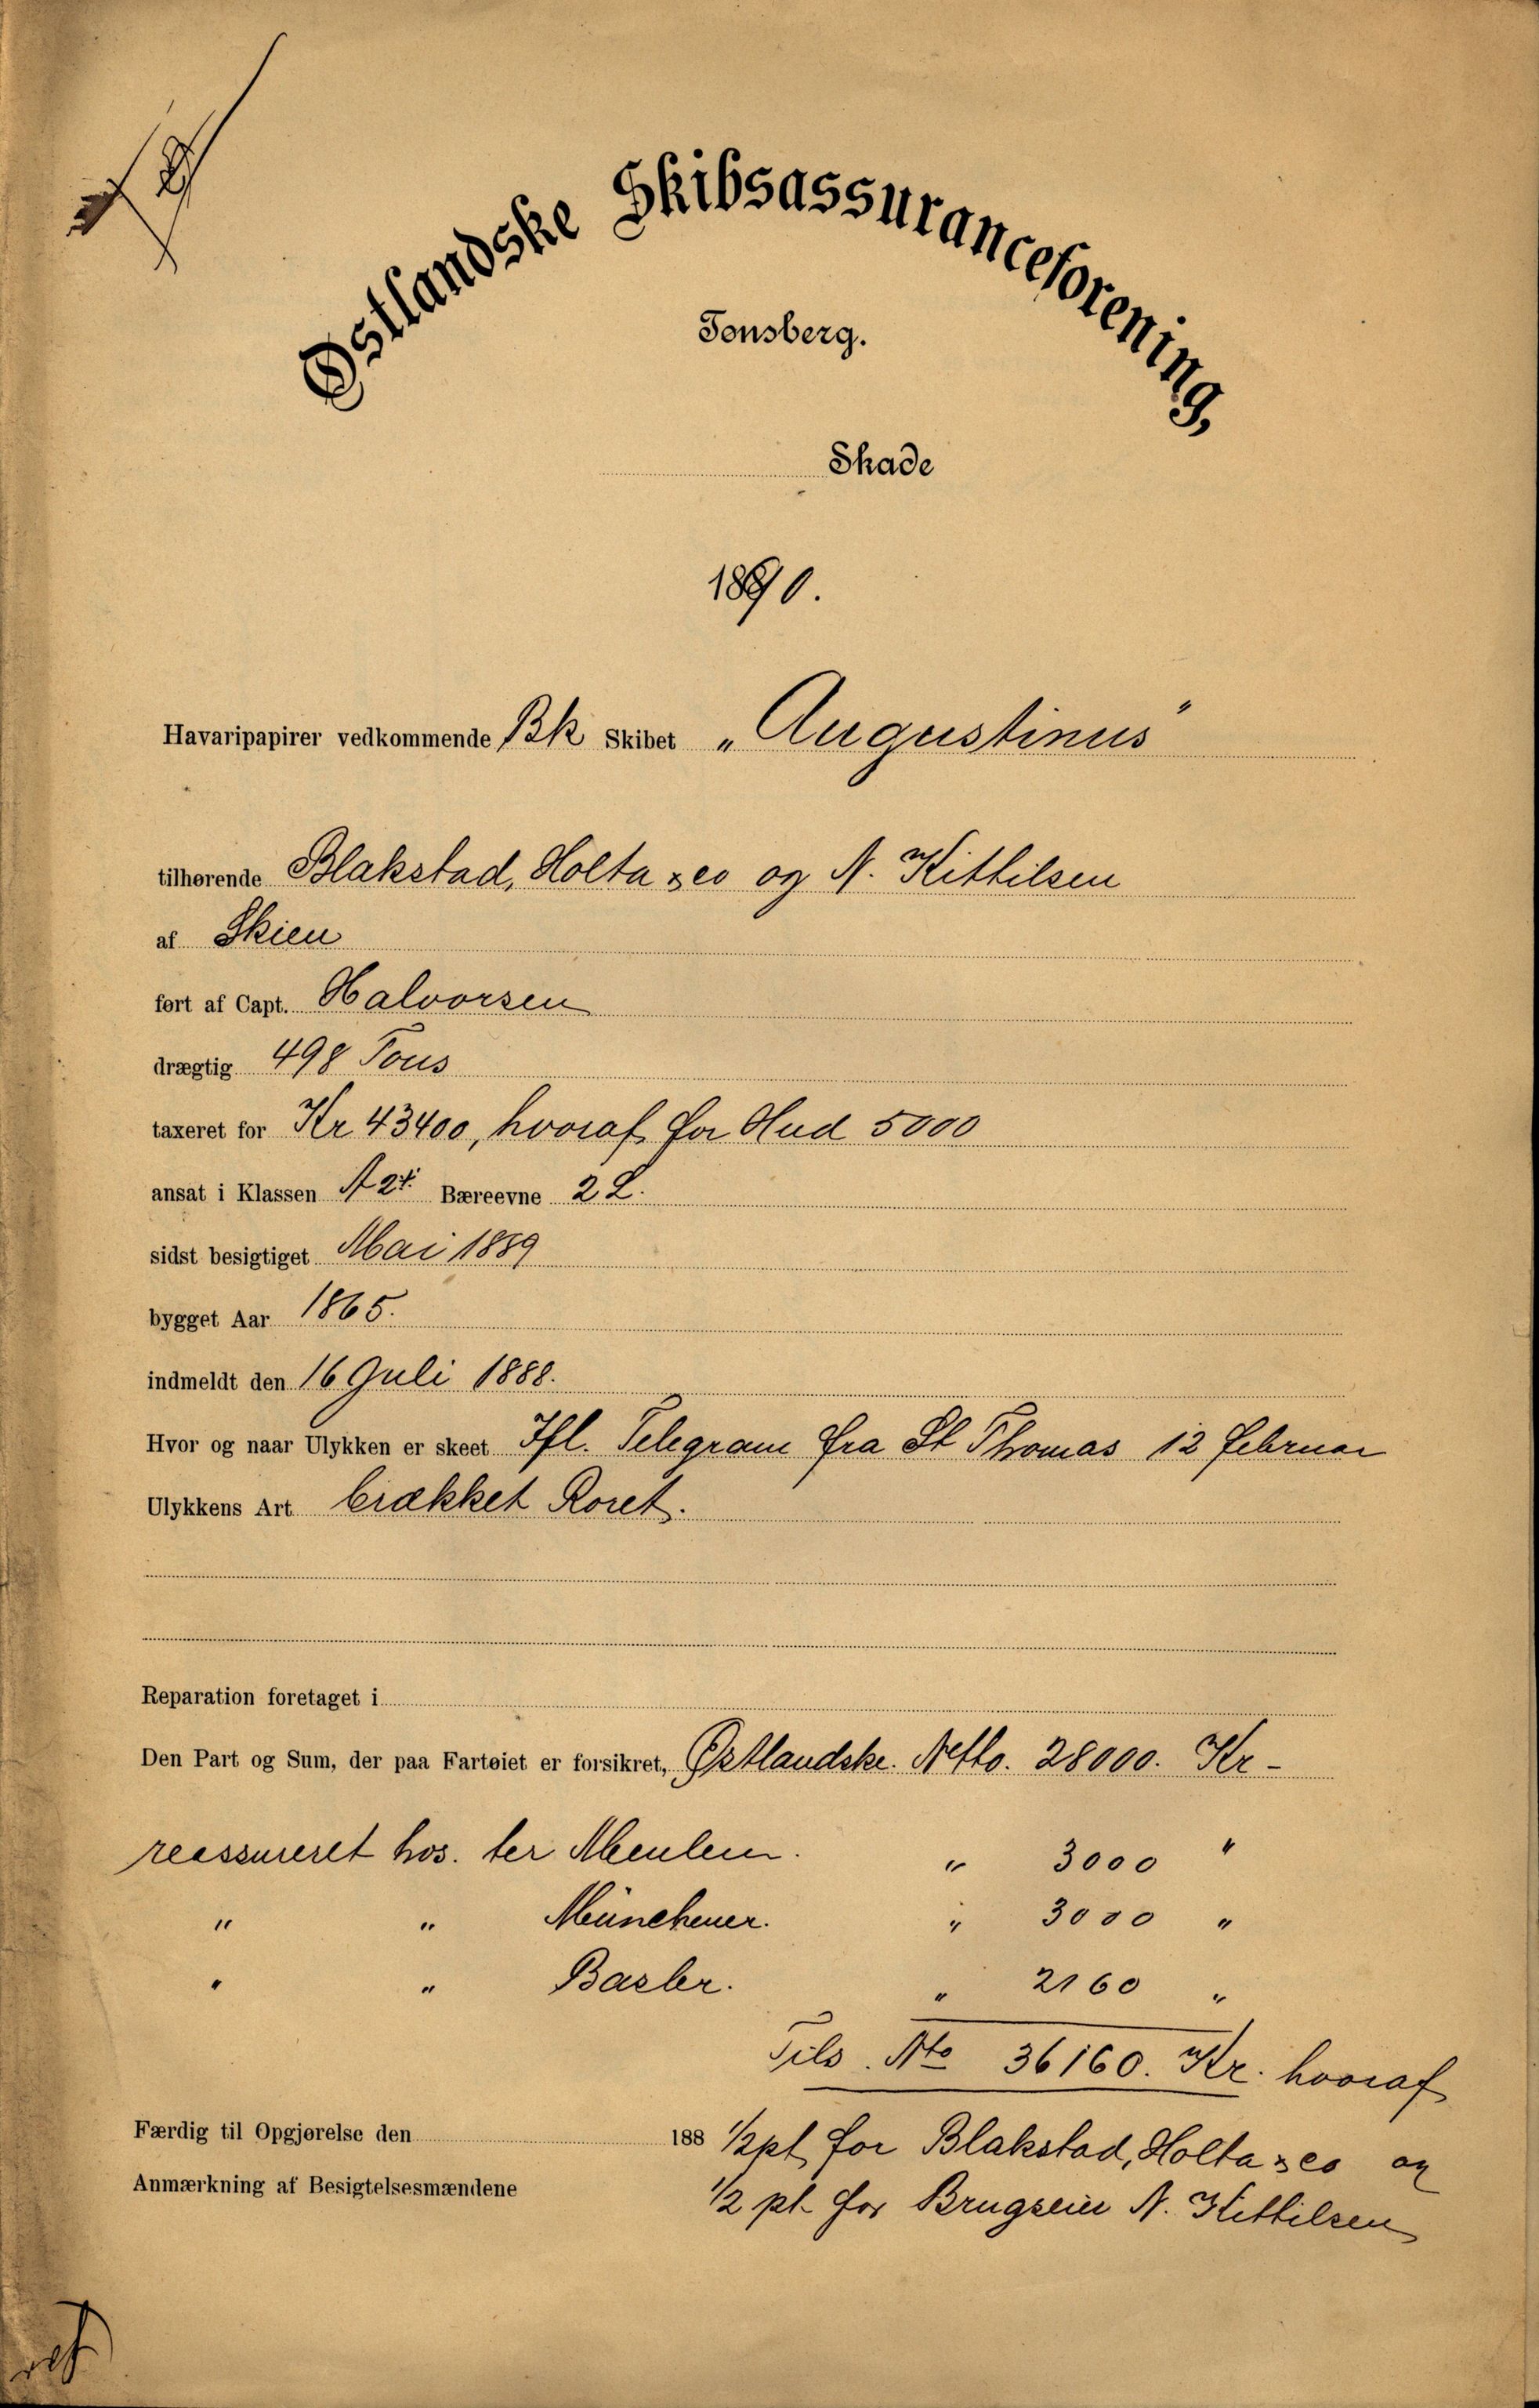 Østlandske Skibsassuranceforening,
Tønsberg.
Skade
1890.
Havaripapirer vedkommende Bk Skibet „Augustinus"
tilhørende Blakstad, Holta & co og N. Kittilsen
af Skien
ført af Capt. Halvorsen
drægtig 498 Tons
taxeret for Kr 43400, hvoraf for Hud 5000
ansat i Klassen A 2 Bæreevne 2 L.
sidst besigtiget Mai 1889
bygget Aar 1865.
indmeldt den 16 Juli 1888.
Hvor og naar Ulykken er skeet Ifl. Telegram fra St Thomas 12 Februar
Ulykkens Art brækket Roret.
Reparation foretaget i
Den Part og Sum, der paa Fartøiet er forsikret, Østlandske. Netto. 28000. Kr -
reassureret hos. ter Meulen. " 3000 "
" " Münchener. " 3000 "
" " Basler. " 2160 "
Tils. Nto 36160. Kr. hvoraf
Færdig til Opgjørelse den 188
1/2 pt for Blakstad, Holta & co og
Anmærkning af Besigtelsesmændene
1/2 pt for Brugseier N. Kittilsen